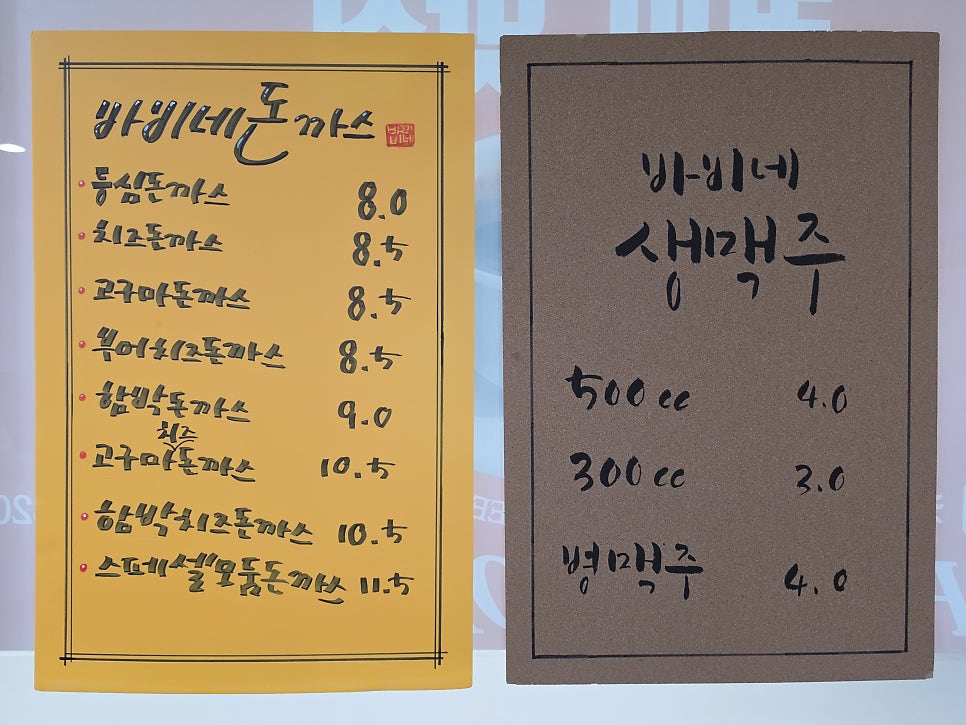 바비네돈까스
바비네
등심돈까스 8.0
치즈돈까스 8.5
고구마돈까스 8.5
부어치즈돈까스 8.5
함박돈까스 9.0
치즈
고구마돈까스 10.5
함박치즈돈까스 10.5
스페셜모둠돈까스 11.5
바비네
생맥주
500cc 4.0
300cc 3.0
병맥주 4.0